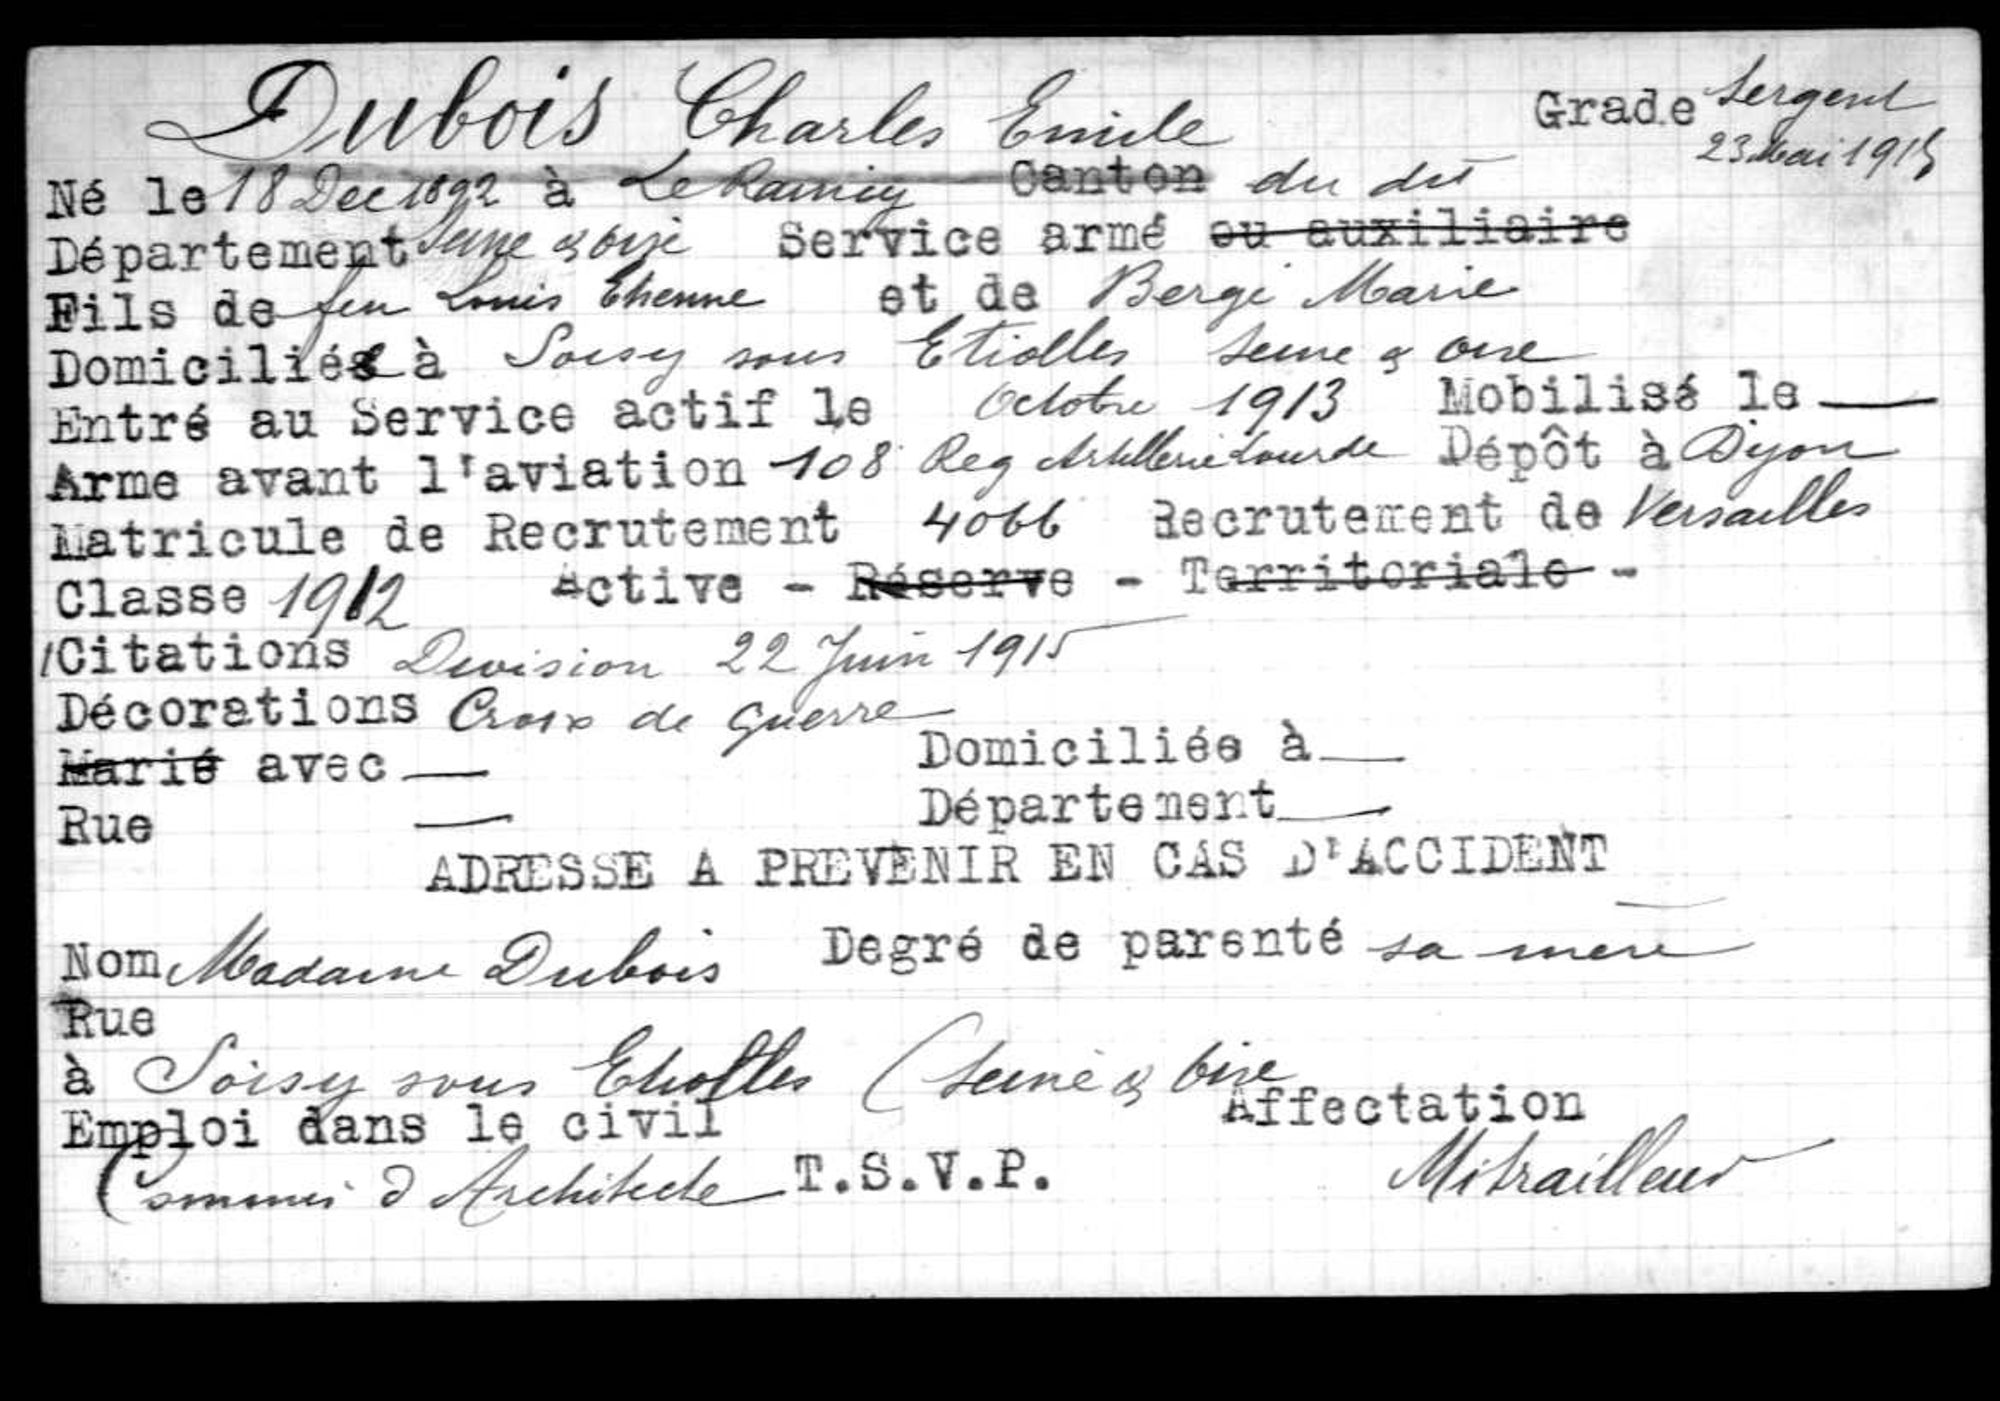 Dubois Charles Emile Grade Sergent
23 Mai 1915
Né le 18 Dec 1892 à Le Raincy Canton du dit
Département Seine & Oise Service armé ou auxiliaire
Fils de feu Louis Etienne et de Bergé Marie
Domicilié à Soisy sous Etiolles Seine & Oise
Entré au Service actif le Octobre 1913 Mobilisé le —
Arme avant l'aviation 108 Reg Artillerie Lourde Dépôt à Dijon
Matricule de Recrutement 4066 Recrutement de Versailles
Classe 1912 Active - Réserve - Territoriale -
Citations Division 22 Juin 1915
Décorations Croix de Guerre
Marié avec — Domiciliée à —
Rue — Département —
ADRESSE A PREVENIR EN CAS D'ACCIDENT
Nom Madame Dubois Degré de parenté sa mère
Rue
à Soisy sous Etiolles (Seine & Oise
Emploi dans le civil Affectation
Commis d'Architecte T.S.V.P. Mitrailleur